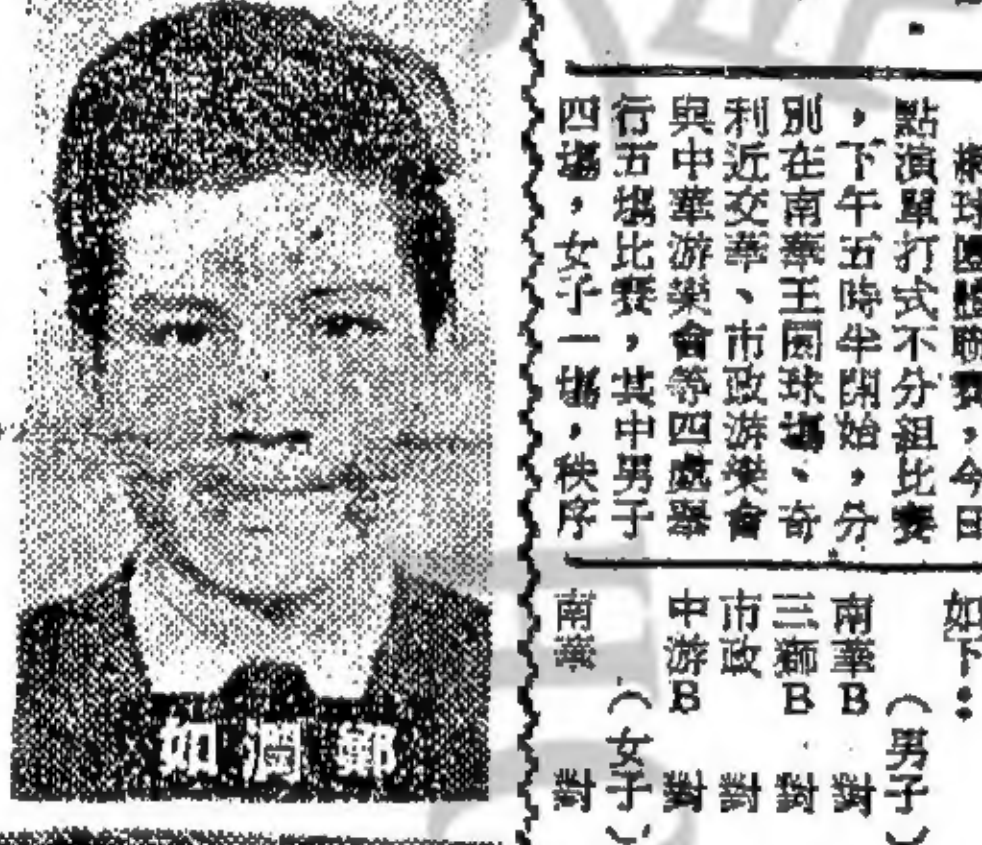 網球團體聯賽，今日
點演單打式不分組比賽
，下午五時半開始，分
別在南華王園球塲、奇
利近交華、市政游樂會
與中華游樂會等四處舉
行五塲比賽，其中男子
四塲，女子一塲，秩序
如下：
（男子）
南華B 對
三獅B 對
市政 對
中游B 對
（女子）
南華 對
鄭潤如